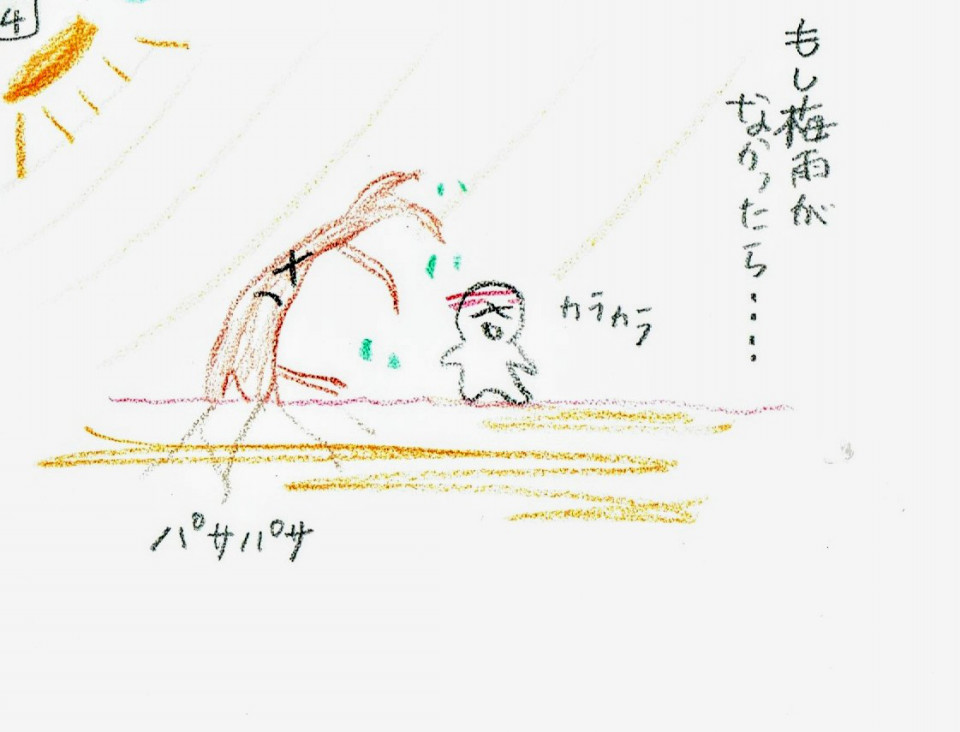 4
もし梅雨が
なかったら・・・・
カラカラ
パサパサ